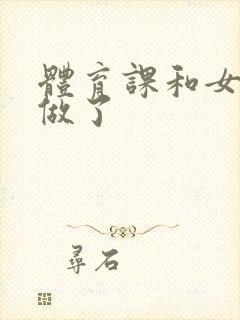 體育課和女
做了
尋石